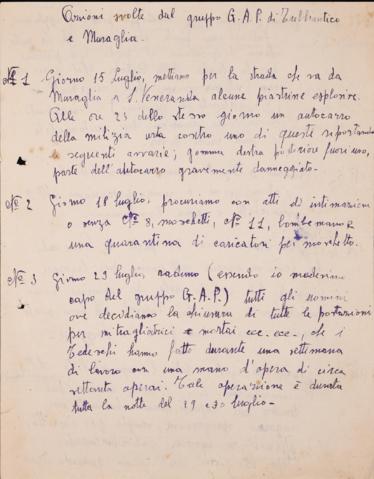 Azioni svolte dal gruppo G.A.P. di
e Muraglia.
Nº 1 Giorno 15 luglio, mettiamo per la strada che va da
Muraglia a S. Veneranda alcune piastrine esplosive.
Alle ore 23 dello stesso giorno un autocarro
della milizia urta contro uno di queste riportando
i seguenti avvarie; gomma destra posteriore fuori uso,
parte dell'autocarro gravemente danneggiato-
Nº 2 Giorno 18 luglio, procuriamo con atti di intimazioni
o senza Nº 8, moschetti, Nº 11, bombe mano e
una quarantina di caricatori per moschetto.
Nº 3 Giorno 29 luglio, raduno (essendo io medesimo
capo del gruppo G.A.P.) tutti gli uomini
ove decidiamo la chiusura di tutte le postazioni
per mitragliatrici e mortai ecc. ecc., che i
Tedeschi hanno fatto durante una settimana
di lavoro con una mano d'opera di circa
settanta operai. Tale operazione è durata
tutta la notte del 29 e 30 luglio-